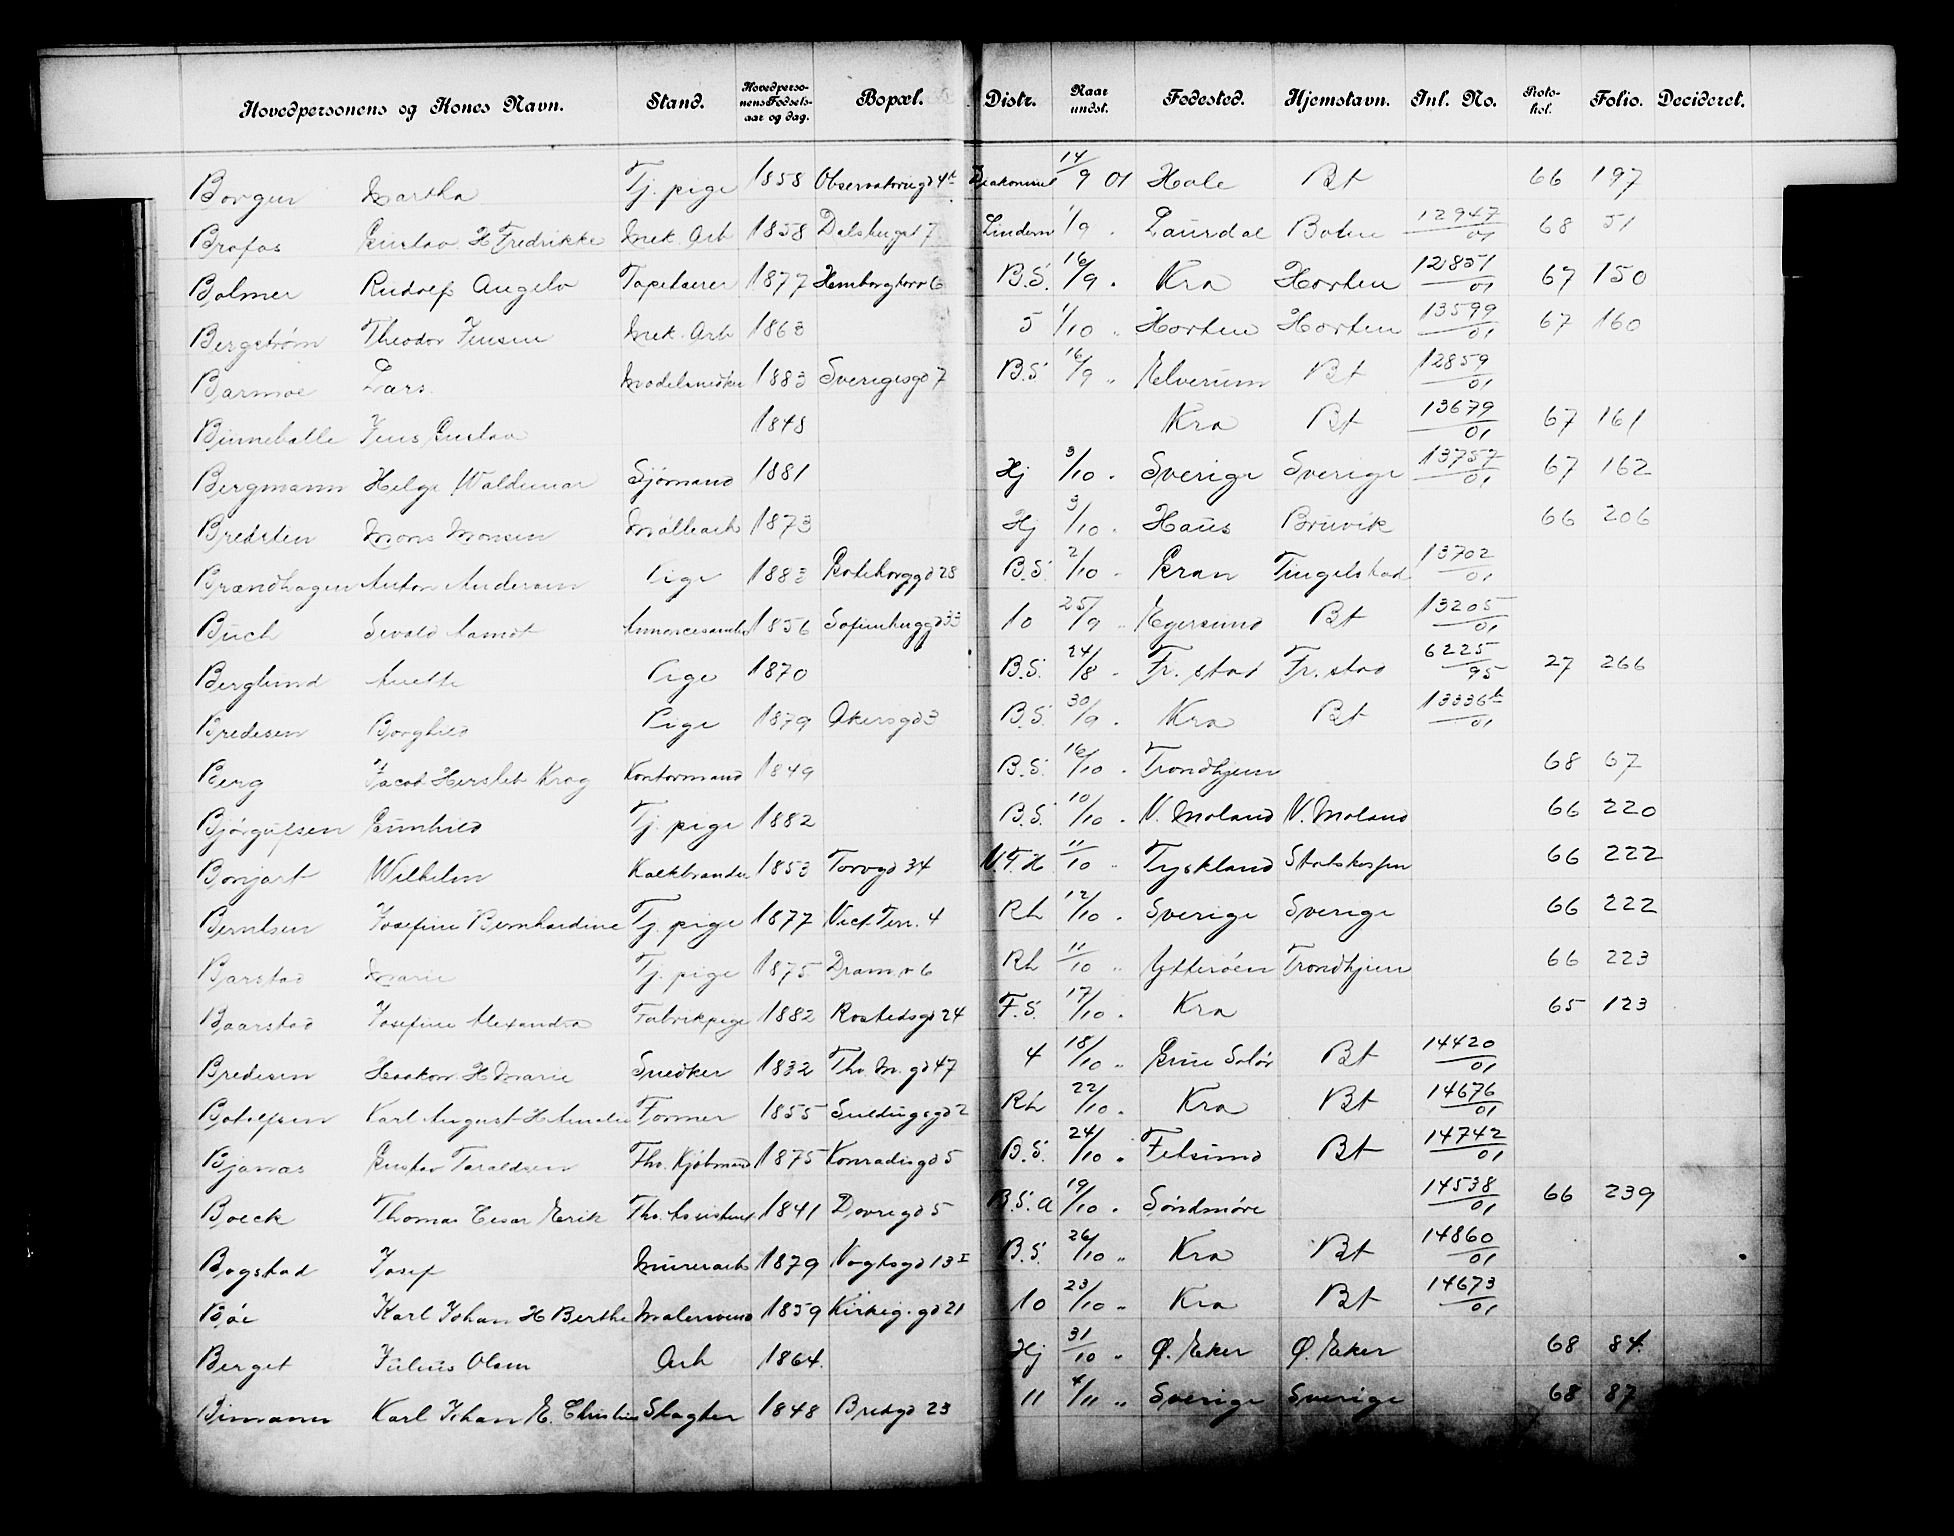 Hovedpersonens og Kones Navn. Stand. Hovedpersonens Fødselsaar og dag. Bopæl. Distr. Naar undst. Fødested. Hjemstavn. Inl. No. Protokol. Folio. Decideret.
Borgen Martha Tj. pige 1858 Observatoriegd 4b Diakonind 14/9 01 Hole Bt 66 197
Brofos Gustav H Fredrikke Mek. Arb 1858 Dalsbergst 7 Lindern 1/9 " Laurdal Bt 12947/01 68 51
Bolmer Rudolf Angelo Tapetserer 1877 6 B.S. 16/9 " Kra Horten 12851/01 67 150
Bergstrøm Theodor Jensen Mek. Arb 1863 5 1/10 " Horten Horten 13599/01 67 160
Barmoe Lars Modelsnedker 1883 Sverigesgd 7 B.S. 16/9 " Elverum Bt 12859/01
Binneballe Jens Gustav 1848 Kra Bt 13679/01 67 161
Bergmann Helge Waldemar Sjømand 1881 Hj 3/10 " Sverige Sverige 13757/01 67 162
Bredsten Mons Monsen 1873 Hj 3/10 " Haus Bruvik 66 206
Brændhagen Anton Andersen Pige 1883 Goteborggd 28 B.S. 2/10 " Gran Tingelstad 13702/01
Buch Sivald Aamot Annoncesamler 1856 Sofienberggd 33 10 25/9 " Egersund Bt 13205/01
Berglund Anette Pige 1870 B.S. 24/8 " Fr. stad Fr. stad 6225/95 27 266
Bredesen Borghild Pige 1879 Akersgd 3 B.S. 30/9 " Kra Bt 13336b/01
Berg Jacob Herslet Krog Kontormand 1849 B.S. 16/10 " Trondhjem 68 67
Bjørgulfsen Gunhild Tj. pige 1882 B.S. 10/10 " V. Moland V. Moland 66 220
Bonjart Wilhelm Kalkbrander 1853 Torvgd 34 V.F.H 11/10 " Tyskland Statskassen 66 222
Berntsen Josefine Bernhardine Tj. pige 1877 Vict. Terr. 4 Rh 12/10 " Sverige Sverige 66 222
Barstad Marie Tj. pige 1875 Dram.v 6 Rh 11/10 " Ytterøen Trondhjem 66 223
Baarstad Josefine Alexandra Fabrikpige 1882 Rostedsgd 24 F.S. 17/10 " Kra 65 123
Bredesen Haakon H Marie Snedker 1832 Th. M. gd 47 4 18/10 " Grue Solør Bt 14420/01
Botolfsen Karl August H Amalie Former 1855 2 Rh 22/10 " Kra Bt 14676/01
Bjanæs Gustav Taraldsen Fhv. Kjøbmand 1875 Konradisgd 5 B.S. 24/10 " Fetsund Bt 14742/01
Boeck Thomas Cesar Erik Fhv. Assistent 1841 Dovregd 5 B.S. A 19/10 " Søndmøre 14538/01 66 239
Bogstad Josef Murerarb 1879 Vogtsgd 13 I B.S. 26/10 " Kra Bt 14860/01
Bøe Karl Johan H Berthe Malersvend 1859 Kirkeg. gd 21 10 23/10 " Kra Bt 14673/01
Berget Julius Olsen Arb 1864 Hj 31/10 " Ø. Eker Ø. Eker 68 84
Bimann Karl Johan E. Christine Slagter 1848 Bredgd 23 11 4/11 " Sverige Sverige 68 87